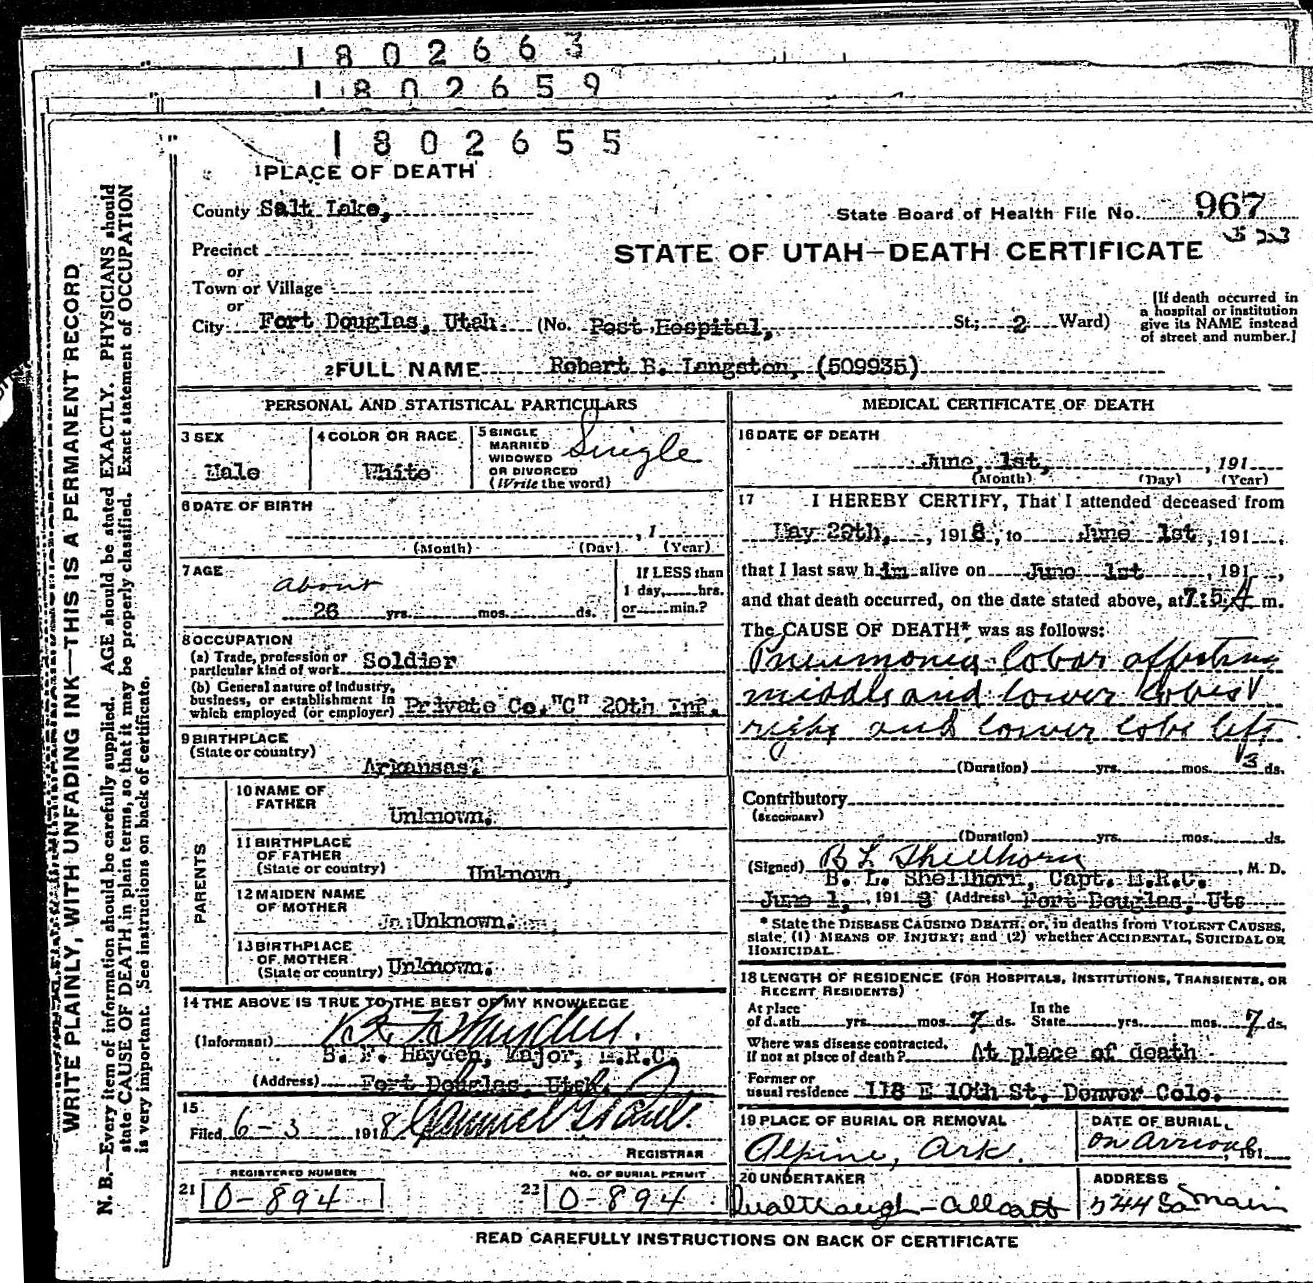 1802663
1802659
1802655
1 PLACE OF DEATH
County Salt Lake,
State Board of Health File No. 967
Precinct
STATE OF UTAH—DEATH CERTIFICATE
or
Town or Village
or
City Fort Douglas, Utah. (No. Post Hospital, St.; 2 Ward)
[If death occurred in
a hospital or institution
give its NAME instead
of street and number.]
2 FULL NAME Robert B. Langston, (509935)
WRITE PLAINLY, WITH UNFADING INK—THIS IS A PERMANENT RECORD
N. B.—Every item of information should be carefully supplied. AGE should be stated EXACTLY. PHYSICIANS should
state CAUSE OF DEATH in plain terms, so that it may be properly classified. Exact statement of OCCUPATION
is very important. See instructions on back of certificate.
PERSONAL AND STATISTICAL PARTICULARS
3 SEX
Male
4 COLOR OR RACE
White
5 SINGLE
MARRIED
WIDOWED
OR DIVORCED
(Write the word)
Single
6 DATE OF BIRTH
, 1
(Month) (Day) (Year)
7 AGE
about
26 yrs. mos. ds.
If LESS than
1 day, hrs.
or min.?
8 OCCUPATION
(a) Trade, profession or
particular kind of work Soldier
(b) General nature of industry,
business, or establishment in
which employed (or employer) Private Co. "C" 20th Inf.
9 BIRTHPLACE
(State or country)
Arkansas.
PARENTS
10 NAME OF
FATHER
Unknown.
11 BIRTHPLACE
OF FATHER
(State or country) Unknown,
12 MAIDEN NAME
OF MOTHER
Unknown.
13 BIRTHPLACE
OF MOTHER
(State or country) Unknown.
14 THE ABOVE IS TRUE TO THE BEST OF MY KNOWLEDGE
(Informant)
B. F. Hayden, Major, M.R.C.
(Address) Fort Douglas, Utah.
15
Filed 6-3 1918
REGISTRAR
REGISTERED NUMBER
21 0-894
NO. OF BURIAL PERMIT
22 0-894
MEDICAL CERTIFICATE OF DEATH
16 DATE OF DEATH
June, 1st, , 191
(Month) (Day) (Year)
17 I HEREBY CERTIFY, That I attended deceased from
May 29th, , 1918, to June 1st , 191 ,
that I last saw him alive on June 1st , 191 ,
and that death occurred, on the date stated above, at A m.
The CAUSE OF DEATH* was as follows:
Pneumonia lobar affecting
middle and lower lobes
right and lower lobe left
(Duration) yrs. mos. 3 ds.
Contributory
(SECONDARY)
(Duration) yrs. mos. ds.
(Signed) B L Shellhorn , M. D.
B. L. Shellhorn, Capt. M.R.C.
June 1, , 1918 (Address) Fort Douglas, Uta
* State the DISEASE CAUSING DEATH, or, in deaths from VIOLENT CAUSES,
state (1) MEANS OF INJURY; and (2) whether ACCIDENTAL, SUICIDAL OR
HOMICIDAL.
18 LENGTH OF RESIDENCE (FOR HOSPITALS, INSTITUTIONS, TRANSIENTS, OR
RECENT RESIDENTS)
At place
of death yrs. mos. 7 ds.
In the
State yrs. mos. 7 ds.
Where was disease contracted,
if not at place of death? At place of death
Former or
usual residence 118 E 10th St. Denver Colo.
19 PLACE OF BURIAL OR REMOVAL
Alpine, Ark.
DATE OF BURIAL,
on arrival , 191
20 UNDERTAKER
ADDRESS
So main
READ CAREFULLY INSTRUCTIONS ON BACK OF CERTIFICATE